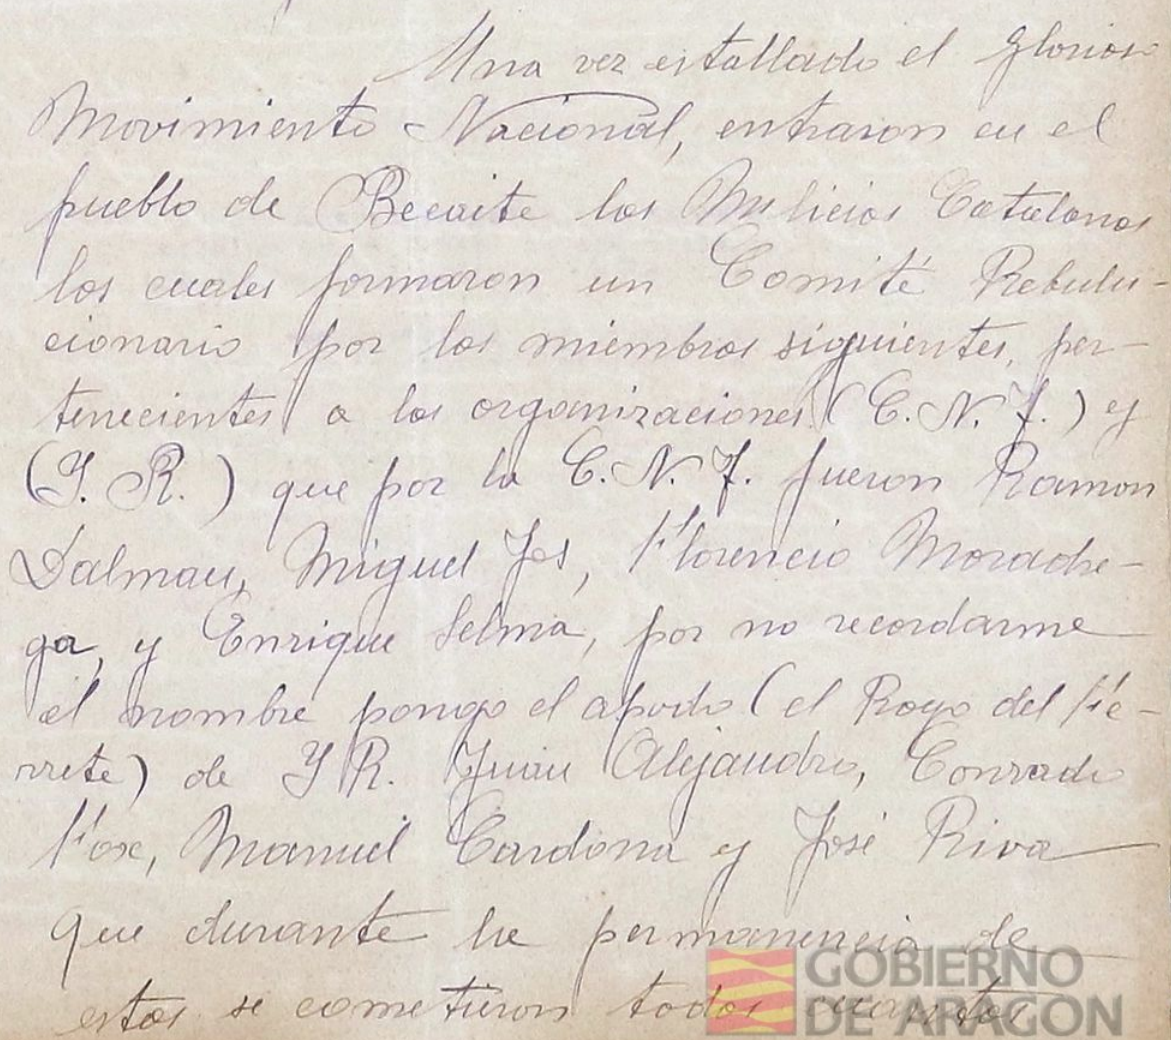 Una vez estallado el Glorioso
Movimiento Nacional, entraron en el
pueblo de Beceite las Milicias Catalanas
los cuales formaron un Comité Rebulu-
cionario por los miembros siguientes, per-
tenecientes a las organizaciones (C.N.T.) y
(I. R.) que por la C.N.T. fueron Ramon
Dalmau, Miguel Jos, Florencio Moradre-
ga, y Enrique Selma, por no recordarme
el nombre pongo el apodo (el Royo del Fe-
rrete) de I R. Juan Alejandro, Conrado
Fox, Manuel Cardona y José Riva
que durante la permanencia de
estos se cometieron todos cuantos
GOBIERNO
DE ARAGON